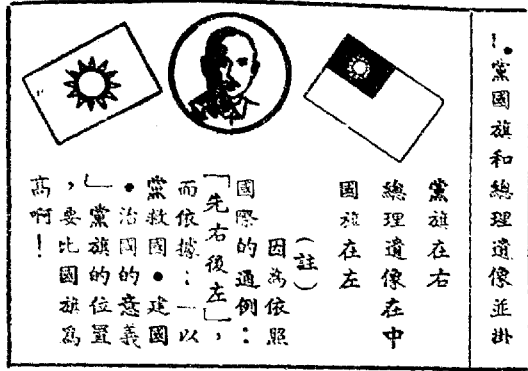 1.黨國旗和總理遺像並掛
黨旗在右
總理遺像在中
國旗在左
(註)
因為依照
國際的通例:
「先右後左」,
而依據:「以
黨救國•建國
•治國的意義
」黨旗的位置
,要比國旗為
高啊!